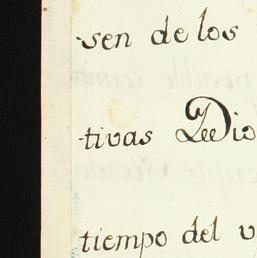 sen de los
tivas Dio
tiempo del v